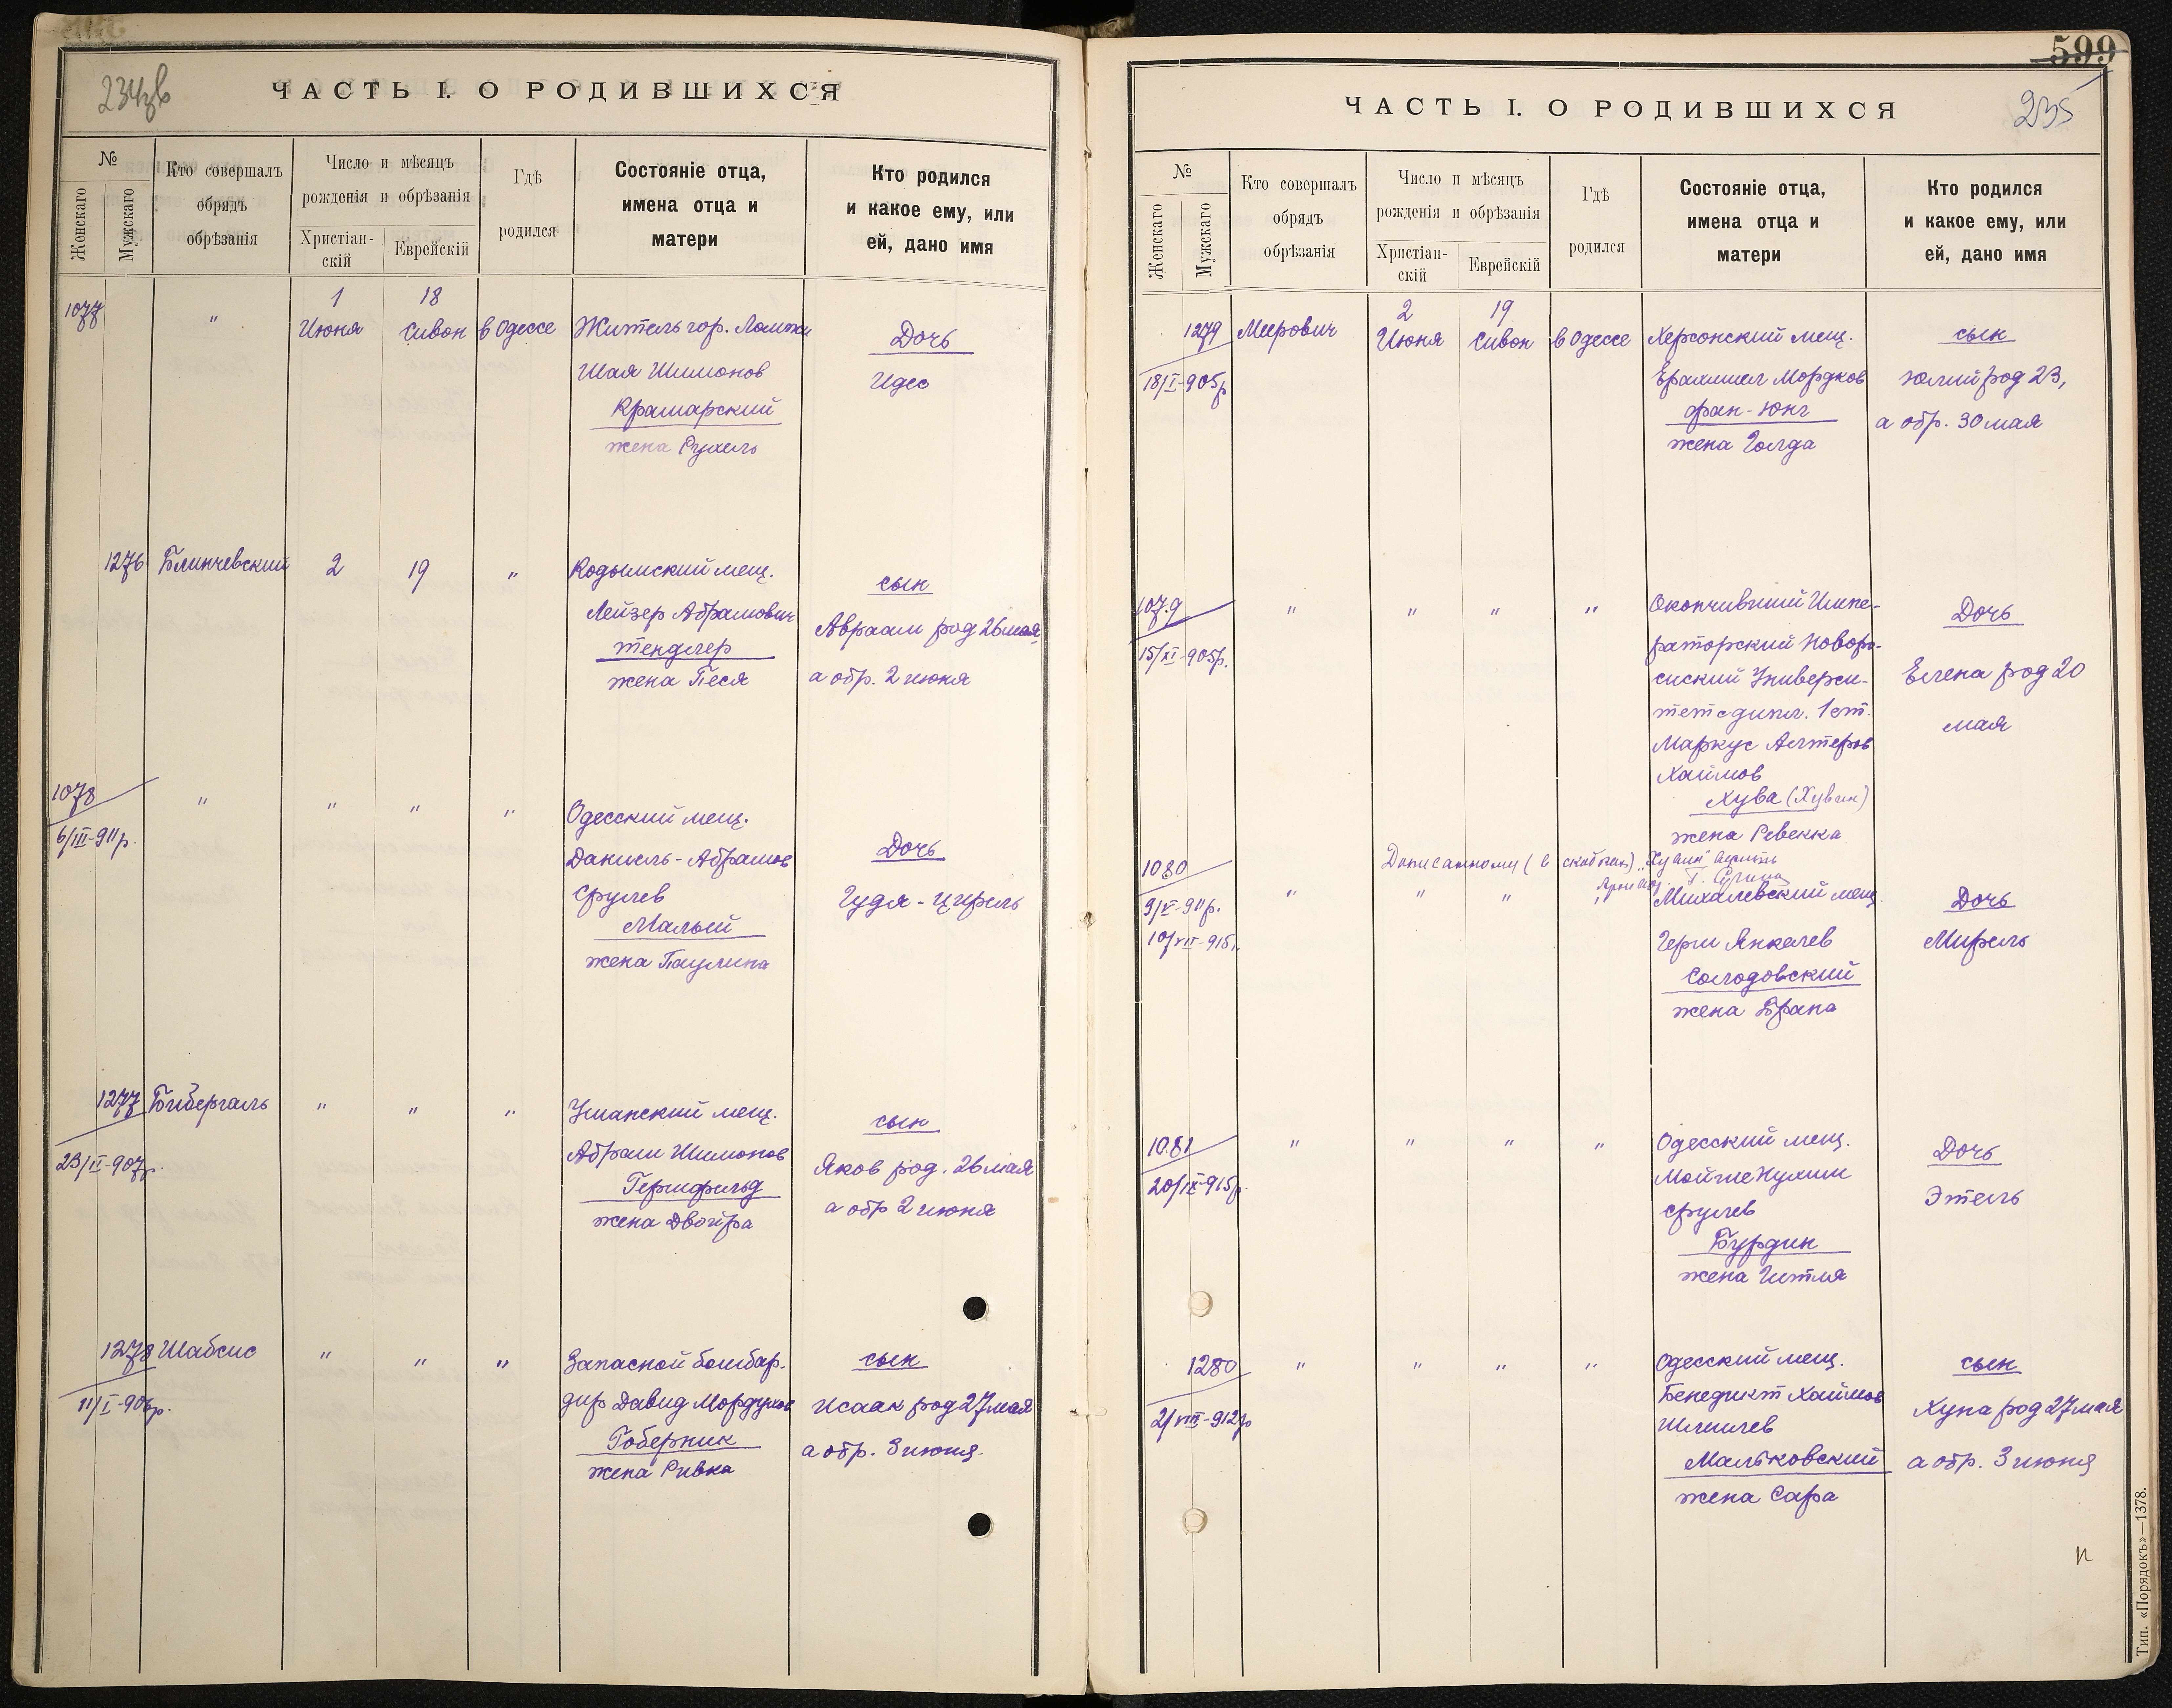 234зв
ЧАСТЬ I. О РОДИВШИХСЯ
№
Женскаго
Мужскаго
Кто совершалъ
обрядъ
обрѣзанія
Число и мѣсяцъ
рожденія и обрѣзанія
Христіан-
скій
Еврейскій
Гдѣ
родился
Состояніе отца,
имена отца и
матери
Кто родился
и какое ему, или
ей, дано имя
1077
"
1
Июня
18
Сивон
в Одессе
Житель гор. Ломжи
Шая Шимонов
Крамарский
жена Рухель
Дочь
Идес
1276
Блинчевский
2
19
"
Кодымский мещ.
Лейзер Абрамович
Тендлер
жена Песя
сын
Авраам род 26 мая
а обр. 2 июня
1078
6/III-911р.
"
"
"
"
Одесский мещ.
Даниель-Абрамов
Срулев
Малый
жена Паулина
Дочь
Гудя-Цирель
1277
23/II-907р.
Бибергаль
"
"
"
Уманский мещ.
Абрам Шимонов
Гершфельд
жена Двойра
сын
Яков род. 26 мая
а обр 2 июня
1278
11/I-906р.
Шабсис
"
"
"
Запасной бомбар-
дир Давид Мордухов
Гоберник
жена Ривка
сын
Исаак род 27 мая
а обр. 3 июня
599
235
ЧАСТЬ I. О РОДИВШИХСЯ
№
Женскаго
Мужскаго
Кто совершалъ
обрядъ
обрѣзанія
Число и мѣсяцъ
рожденія и обрѣзанія
Христіан-
скій
Еврейскій
Гдѣ
родился
Состояніе отца,
имена отца и
матери
Кто родился
и какое ему, или
ей, дано имя
1279
18/I-905р
Меерович
2
Июня
19
Сивон
в Одессе
Херсонский мещ.
Ерахмиел Мордков
фан-Юнг
жена Голда
сын
Юлий род 23,
а обр. 30 мая
1079
15/XI-905р.
"
"
"
"
Окончивший Импе-
раторский Новорос-
сиский Универси-
тет с дипл. 1 ст.
Маркус Алтеров
Хаимов
Хува (Хувин)
жена Ревекка
Дочь
Елена род 20
мая
Дописанному (в скобках) "Хувин"
1080
9/V-911р.
10/VII-915г.
"
"
"
"
Михалевский мещ.
Герш Янкелев
Солодовский
жена Брана
Дочь
Мирель
1081
20/IX-915р.
"
"
"
"
Одесский мещ.
Мойше Нухим
Срулев
Бурдин
жена Гитля
Дочь
Этель
1280
2/VIII-912р
"
"
"
"
Одесский мещ.
Бенедикт Хаимов
Шлемлев
Мальковский
жена Сара
сын
Хуна род 27 мая
а обр. 3 июня
Тип. «Порядокъ»—1378.